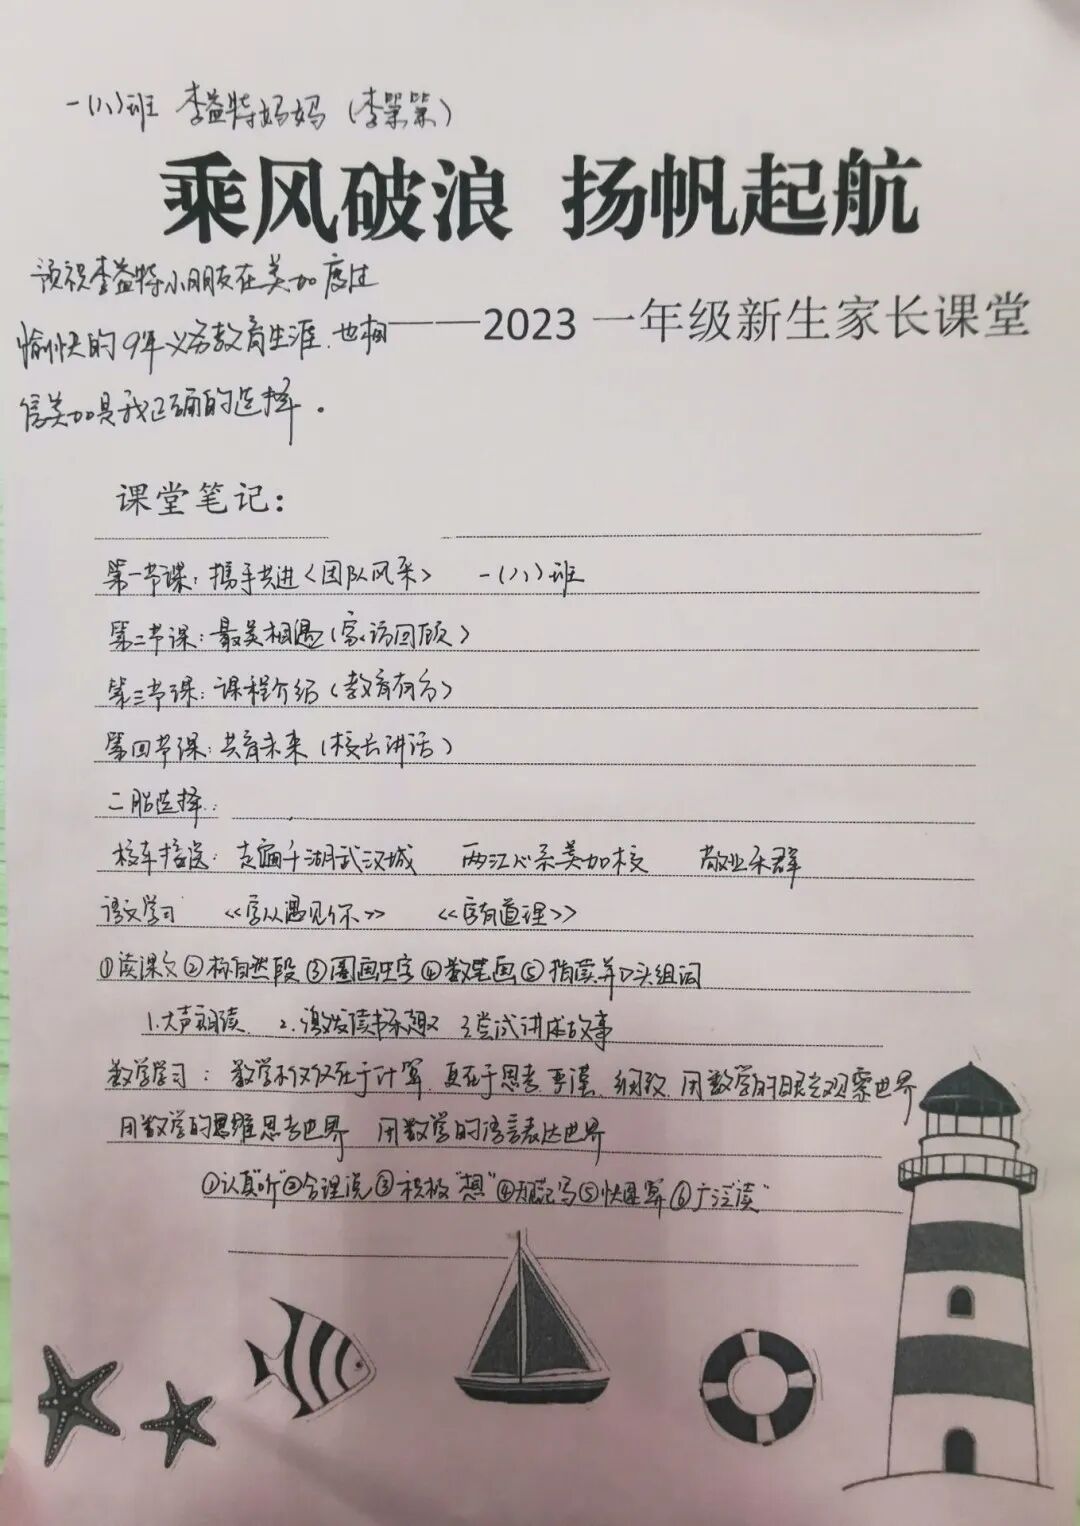 一(八)班 李益特妈妈 (李翠翠)
乘风破浪 扬帆起航
预祝李益特小朋友在美加度过
愉快的9年义务教育生涯,也相
信美加是我正确的选择.
——2023 一年级新生家长课堂
课堂笔记:
第一节课:携手共进<团队风采> 一(八)班
第二节课:最美相遇(家访回顾)
第三节课:课程介绍(教育有方)
第四节课:共育未来(校长讲话)
二胎选择:
校车接送:走遍千湖武汉城 两江心系美加校 敬业乐群
语文学习 《字从遇见你》 《字有道理》
①读课文②标自然段③圈画生字④数笔画⑤指读并口头组词
1.大声朗读 2.激发读书乐趣 3尝试讲述故事
数学学习:数学不仅仅在于计算,更在于思考 严谨、细致 用数学的眼光观察世界
用数学的思维思考世界 用数学的语言表达世界
①认真"听"②合理说③积极"想"④规范写⑤快速算⑥广泛"读"